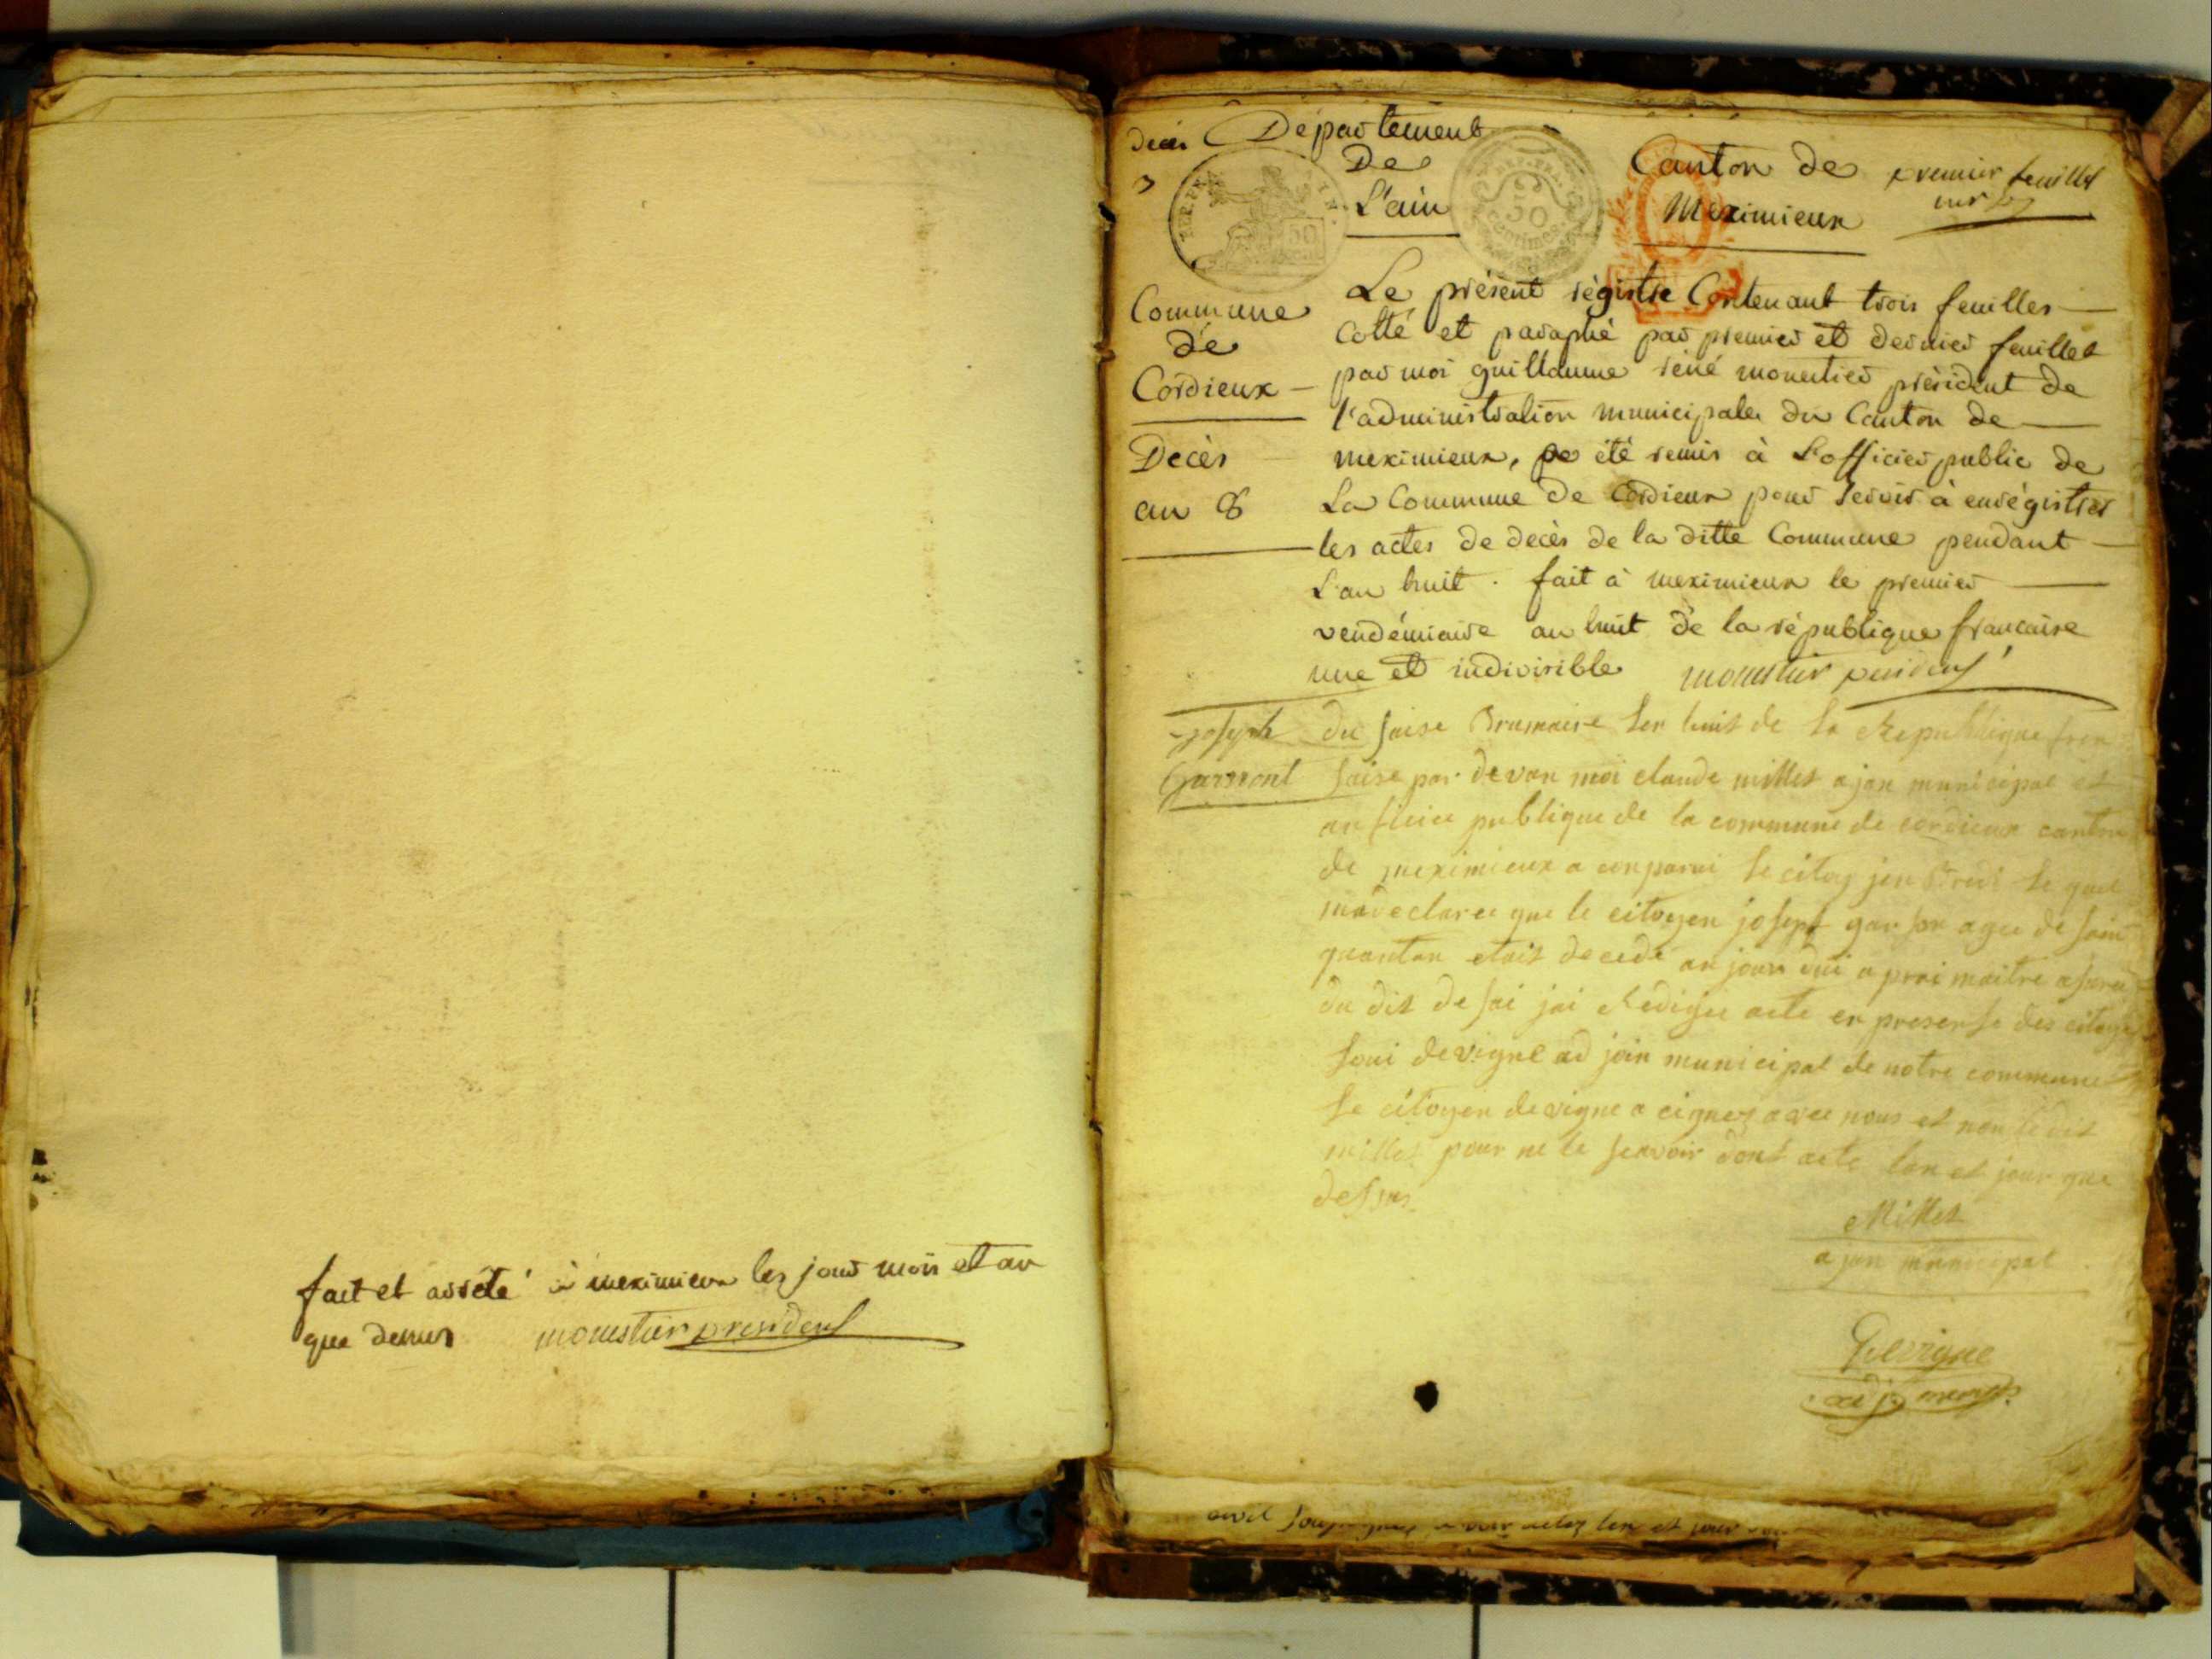 fait et arrêté à meximieux les jour mois et an
que dessus monestier president
Decès
Département
De
L'ain
Canton de
Meximieux
premier feuillet
REP. FRA.
50
Centimes
Commune
de
Cordieux
Decès
an 8
Le présent régistre Contenant trois feuilles
Cotté et paraphé par premier et dernier feuillet
par moi guillaume réné monestier président de
l'administration municipale du Canton de
meximieux, été remis à L'officier public de
La Commune de Cordieux pour servir à enrégistrer
les actes de decès de la ditte Commune pendant
L'an huit. fait à meximieux le premier
vendémiaire an huit de la république francaise
une et indivisible monestier president
joseph
du saise Brumaire lan huit de la Republique fran
saise par devan moi claude millet a jon municipal et
publique de la commune de cordieux canton
de meximieux a conparu le citoyjen le quel
ma declaree que le citoyen joseph garson agee de sain
quantan etait decedé au jour dui a prai maitre asuree
du dit de sai jai Redigee acte en presense des citoyen
loui devigne ad join municipal de notre commune
le citoyen devigne a cignez avec nous et non le dit
millet pour ne le scavoir dont acte lan et jour que
dessus
Millet
a jon municipal
Devigne
adj. munip.
lan et jour